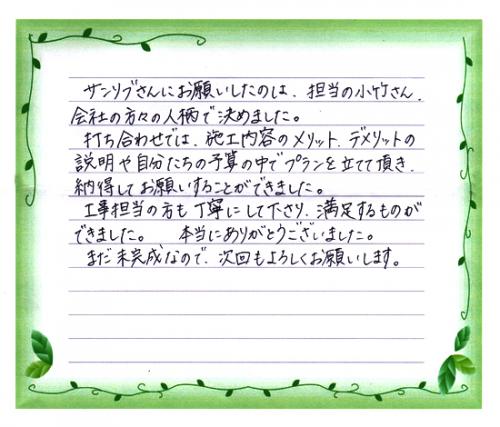 サンリブさんにお願いしたのは、担当の小竹さん、
会社の方々の人柄で決めました。
打ち合わせでは、施工内容のメリット、デメリットの
説明や自分たちの予算の中でプランを立てて頂き、
納得してお願いすることができました。
工事担当の方も丁寧にして下さり、満足するものが
できました。 本当にありがとうございました。
まだ未完成なので、次回もよろしくお願いします。